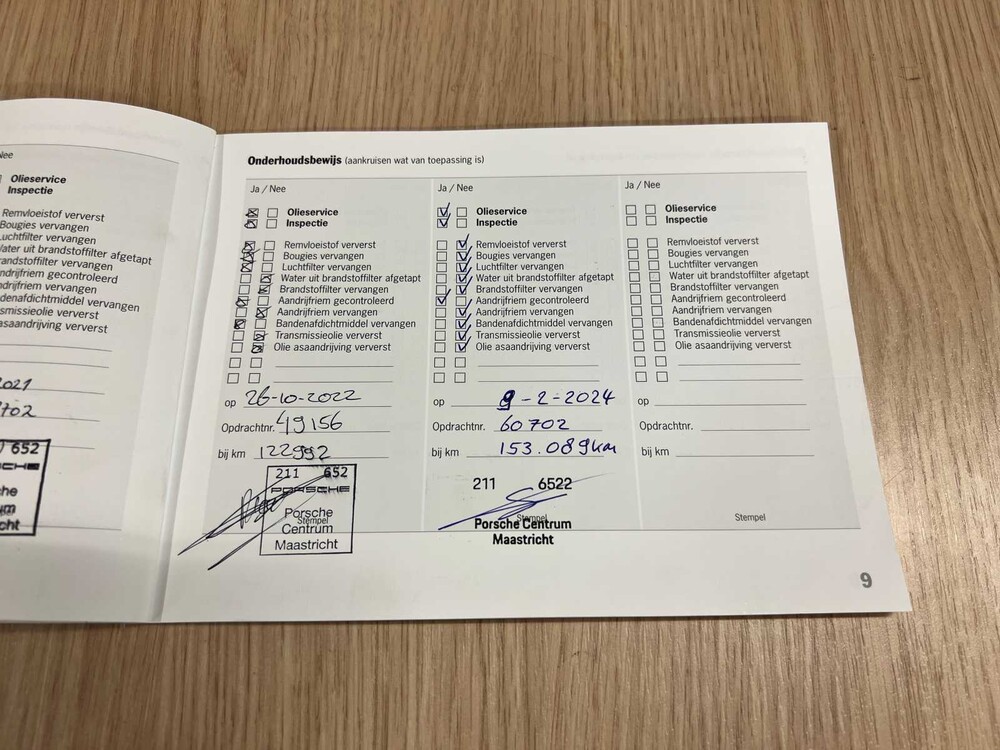 Nee
Olieservice
Inspectie
Remvloeistof ververst
Bougies vervangen
Luchtfilter vervangen
Water uit brandstoffilter afgetapt
randstoffilter vervangen
ndrijfriem gecontroleerd
ndrijfriem vervangen
denafdichtmiddel vervangen
smissieolie ververst
asaandrijving ververst
2021
702
652
SCHE
che
um
cht
Onderhoudsbewijs (aankruisen wat van toepassing is)
Ja / Nee
Olieservice
Inspectie
Remvloeistof ververst
Bougies vervangen
Luchtfilter vervangen
Water uit brandstoffilter afgetapt
Brandstoffilter vervangen
Aandrijfriem gecontroleerd
Aandrijfriem vervangen
Bandenafdichtmiddel vervangen
Transmissieolie ververst
Olie asaandrijving ververst
op 26-10-2022
Opdrachtnr. 49156
bij km 122992
211 652
PORSCHE
Porsche
Stempel
Centrum
Maastricht
Ja / Nee
Olieservice
Inspectie
Remvloeistof ververst
Bougies vervangen
Luchtfilter vervangen
Water uit brandstoffilter afgetapt
Brandstoffilter vervangen
Aandrijfriem gecontroleerd
Aandrijfriem vervangen
Bandenafdichtmiddel vervangen
Transmissieolie ververst
Olie asaandrijving ververst
op 9-2-2024
Opdrachtnr. 60702
bij km 153.089km
211 6522
Stempel
Porsche Centrum
Maastricht
Ja / Nee
Olieservice
Inspectie
Remvloeistof ververst
Bougies vervangen
Luchtfilter vervangen
Water uit brandstoffilter afgetapt
Brandstoffilter vervangen
Aandrijfriem gecontroleerd
Aandrijfriem vervangen
Bandenafdichtmiddel vervangen
Transmissieolie ververst
Olie asaandrijving ververst
op
Opdrachtnr.
bij km
Stempel
9